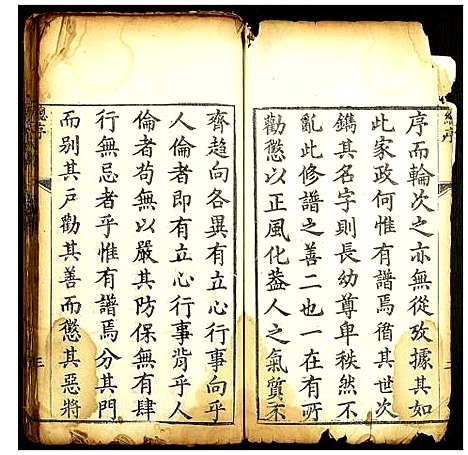 總序
序而輪次之亦無從攷據其如
此家政何惟有譜焉循其世次
鐫其名字則長幼尊卑秩然不
亂此修譜之善二也一在有所
勸懲以正風化葢人之氣質不
齊趨向各異有立心行事向乎
人倫者即有立心行事背乎人
倫者苟無以嚴其防保無有肆
行無忌者乎惟有譜焉分其門
而别其戸勸其善而懲其惡將
總序
三